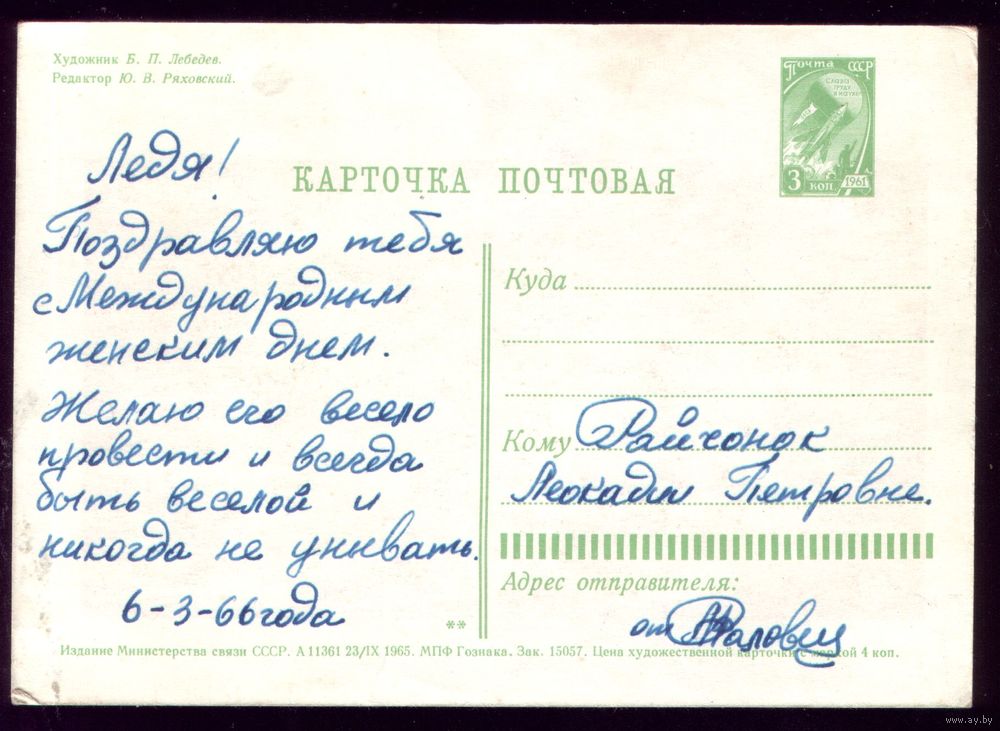 Художник Б. П. Лебедев.
Редактор Ю. В. Ряховский.
Почта СССР
СЛАВА
ТРУДУ
И НАУКЕ
3 КОП
1961
КАРТОЧКА ПОЧТОВАЯ
Ледя!
Поздравляю тебя
с Международным
женским днем.
Желаю его весело
провести и всегда
быть веселой и
никогда не унывать.
6-3-66 года
**
Куда
Кому Райчонок
Леокадии Петровне.
Адрес отправителя:
от
Издание Министерства связи СССР. А 11361 23/IX 1965. МПФ Гознака. Зак. 15057. Цена художественной карточки с маркой 4 коп.
www.ay.by